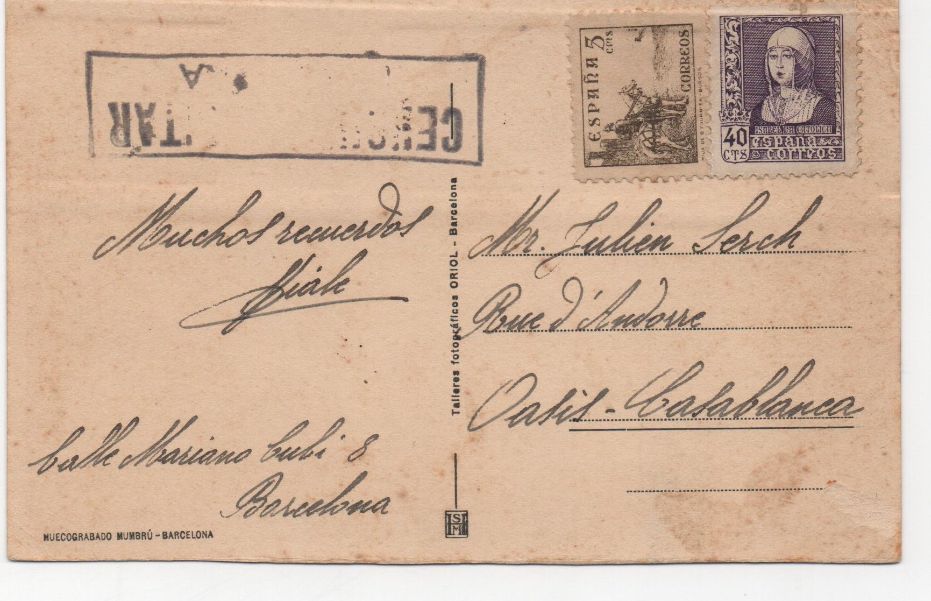 CENSU TAR
A
ESPAÑA 5 CTS
CORREOS
40 CTS
ISABEL LA CATOLICA
españa
correos
Muchos recuerdos
Calle Mariano Cubi 8
Barcelona
HUECOGRABADO MUMBRÚ - BARCELONA
Talleres fotográficos ORIOL - Barcelona
Mr. Julien Serch
Rue d'Andorre
Oasis - Casablanca